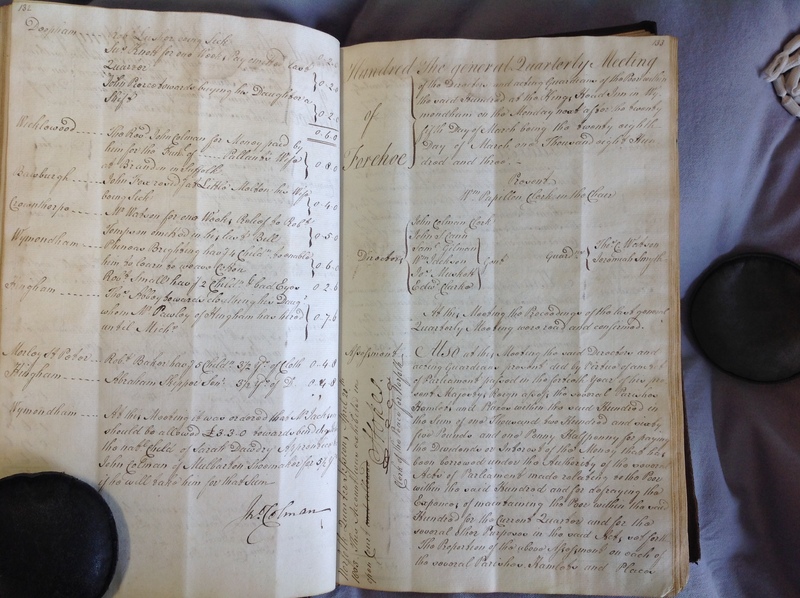 132
Deopham
Jn.o Knock for one Week's Pay omitted last
Quarter
0.2.0
John Pierce towards buying his Daughter a
Shift
0.2.0
0.6.0
Wicklewood
The Rev.d John Colman for Money paid by
him for the
Wife
at Brandon in Suffolk
0.8.0
John Fox
his Wife
being sick
0.4.0
Crownthorpe
Mr Watson for one Week's Relief to Rob.t
Simpson omitted in his last Bill
0.5.0
Wymondham
Phineas Brighting has 4 Child.n to enable
him to learn to weave Cotton
0.6.0
Rob.t Small has 2 Child.n bad Eyes
0.2.6
Hingham
Tho.s towards cloathing his Daug.r
whom Mr Pawley of Hingham has hired
until Mich.s
0.7.6
Morley St Peter
Rob.t Baker has 5 Child.n 3½ Y.ds of Cloth
0.4.8
Hingham
Abraham Skipper Sen.r 3½ Y.ds of D.o
Wymondham
At this Meeting it was ordered that Mr Jackson
should be allowed £3.3.0 towards binding
the Child of Sarah Daudry Apprentice to
John Colman of Mulbarton Shoemaker for
if he will take him for that Sum
Jn.o Colman
133
Hundred
of
Forehoe
The general Quarterly Meeting
of the Directors and acting Guardians of the Poor within
the said Hundred at the Kings Head Inn in Wy
mondham on the Monday next after the twenty
fifth Day of March being the twenty eighth
Day of March one Thousand eight Hun
dred and three
Present
W.m Papillon Clerk in the Chair
Directors
John Colman Clerk
John Cann
Sam.l Gilman
W.m Jackson
Ja.s Muskett
Edw.d Clarke
Gent
Guard.ns
Tho.s C. Watson
Jeremiah Smyth
At this Meeting the Proceedings of the last general
Quarterly Meeting were read and confirmed
Assessment
Also at this Meeting the said Directors and
acting Guardians present did by Virtue of an Act
of Parliament passed in the fortieth Year of his pre
sent Majesty's Reign assess the several Parishes
Hamlets and Places within the said Hundred in
the Sum of one Thousand two Hundred and sixty
five Pounds and one Penny Halfpenny for paying
the Dividends or Interest of the Money that has
been borrowed under the Authority of the several
Acts of Parliament made relating to the Poor
within the said Hundred and for defraying the
Expences of maintaining the Poor within the said
Hundred for the Current Quarter and for the
several other Purposes in the said Acts set forth
The Proportion of the above Assessment on each of
the several Parishes, Hamlets and Places
Norfolk Quarter Sessions, April 20.th
1803. This Assessment exhibited in
open Court
Clerk of the Peace for Norfolk